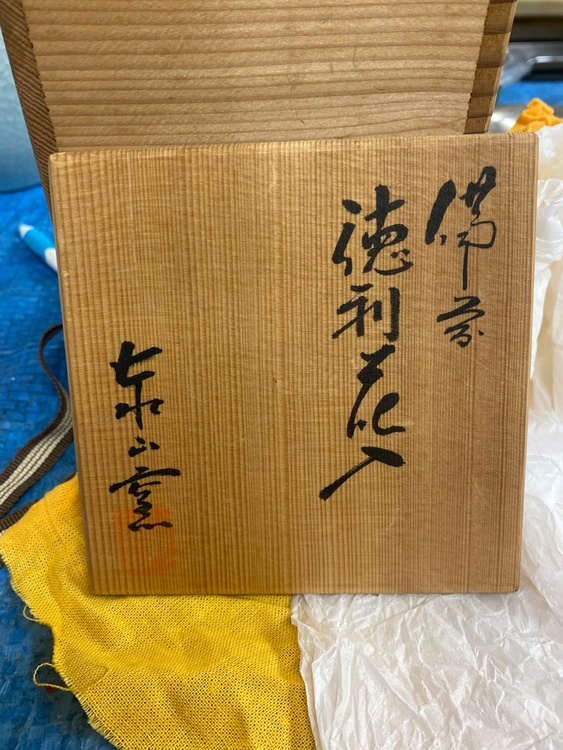 備前
徳利花入
泰山窯